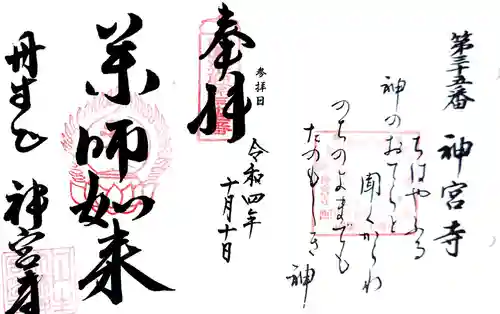 第三十五番 神宮寺
ちはやふる
神のおてらと
聞くからわ
のちのよまでも
たのもしき
神
参拝日
令和四年
十月十日
奉拝
薬師如来
丹生山
神宮寺